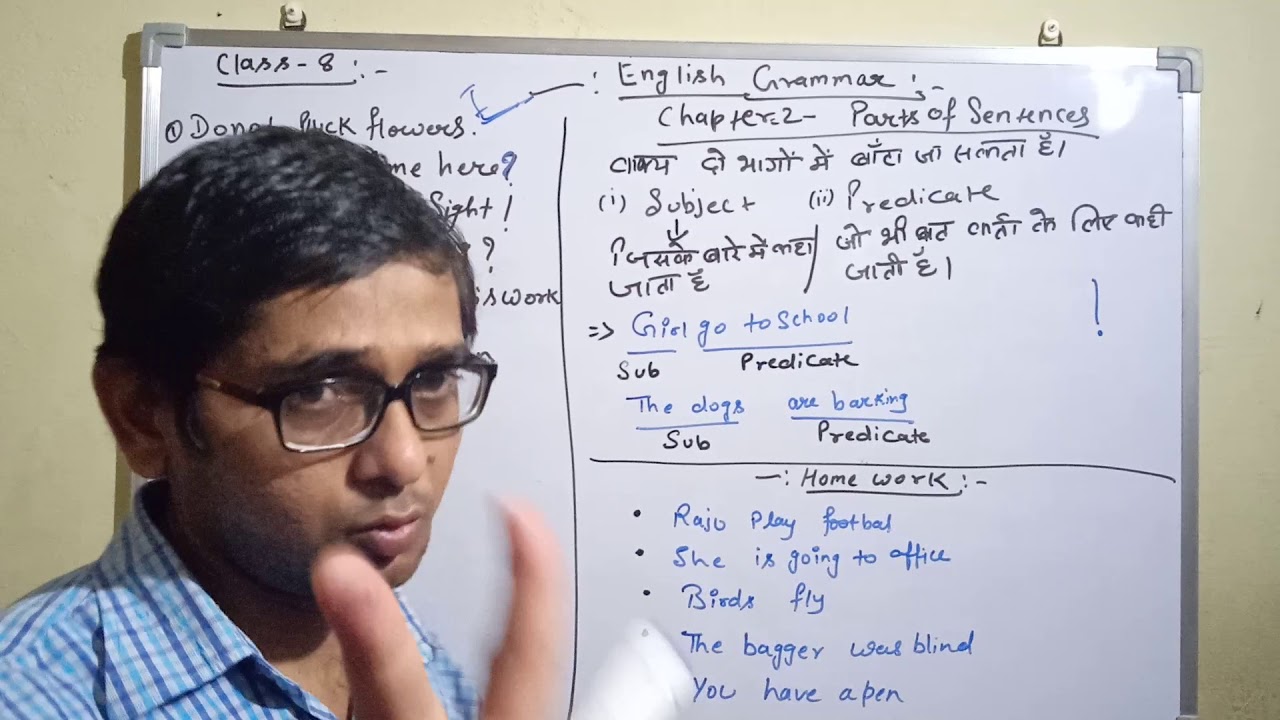 Class-8 :-
① Do not Pluck flowers.
me here?
Sight!
?
is work
: English Grammar :-
Chapter:2- Parts of Sentences
वाक्य दो भागों में बाँटा जा सकता है।
(i) Subject (ii) Predicate
जिसके बारे में कहा / जो भी बात कर्ता के लिए कही
जाता है जाती है।
!
=> Girl go to School
Sub Predicate
The dogs are barking
Sub Predicate
-: Home work :-
• Raju Play footbal
• She is going to office
• Birds fly
• The bagger was blind
You have a pen